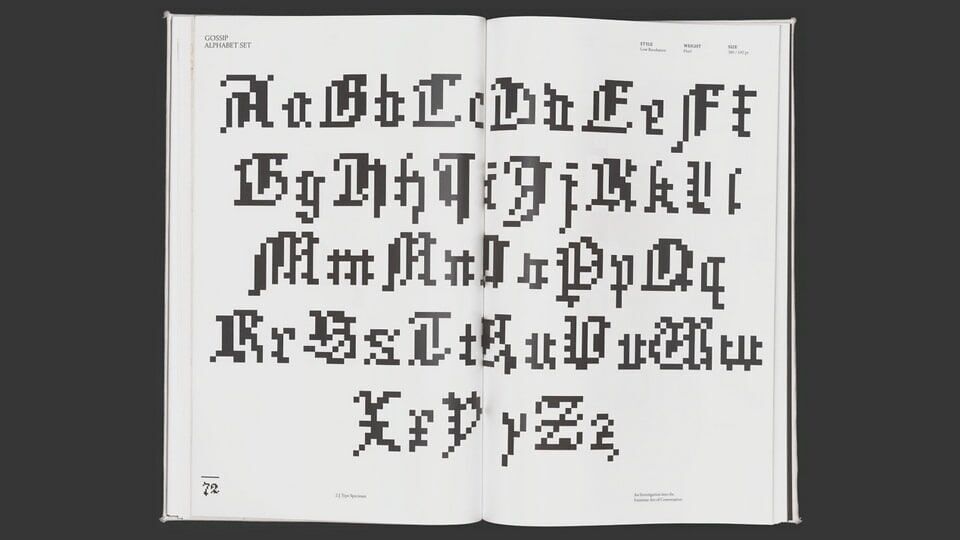 GOSSIP
ALPHABET SET
STYLE
Low Resolution
WEIGHT
Pixel
SIZE
A a B b C c D d E e F f
G g H h I i J j K k L l
M m N n O o P p Q q
R r S s T t U u V v W w
X x Y y Z z
72
2 | Type Specimen
An Investigation into the
Feminine Art of Conversation